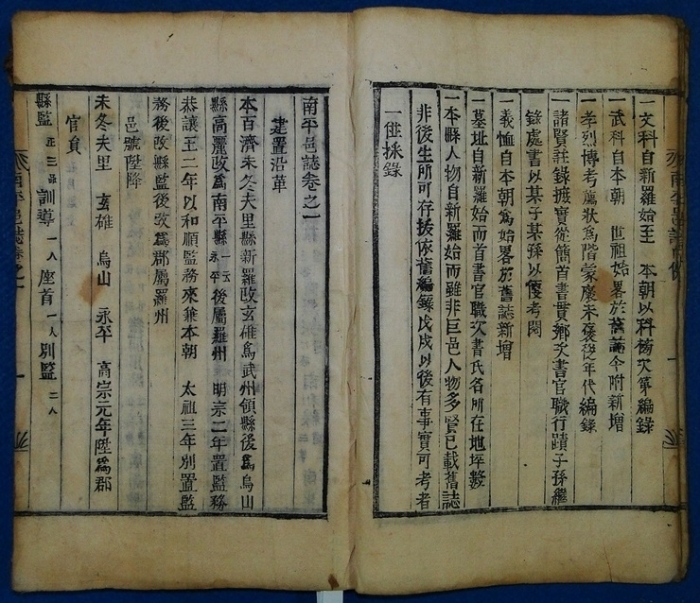 一文科自新羅始至 本朝以科榜次第編錄
一武科自本朝 世祖始畧於舊誌今附新增
一孝烈博考薦狀爲階蒙慶未褒後年代編錄
一諸賢註錄摭實從簡首書貫鄉次書官職行蹟子孫繼
錄處書以某子某孫以便考閱
一義恤自本朝爲始畧於舊誌新增
一墓址自新羅始而首書官職次書氏名所在地坪數
一本縣人物自新羅始而雖非巨邑人物多賢已載舊誌
非後生所可存拔依舊編錄戊戌以後有事實可考者
一從採錄
南平邑誌卷之一
建置沿革
本百濟未冬夫里縣新羅改玄雄爲武州領縣後爲烏山
縣高麗改爲南平縣一云永平後屬羅州 明宗二年置監務
恭讓王二年以和順監務來兼本朝 太祖三年別置監
務後改縣監後改爲郡屬羅州
邑號陞降
未冬夫里 玄雄 烏山 永平 高宗元年陞爲郡
官員
縣監正三品 訓導一人 座首一人 別監二人